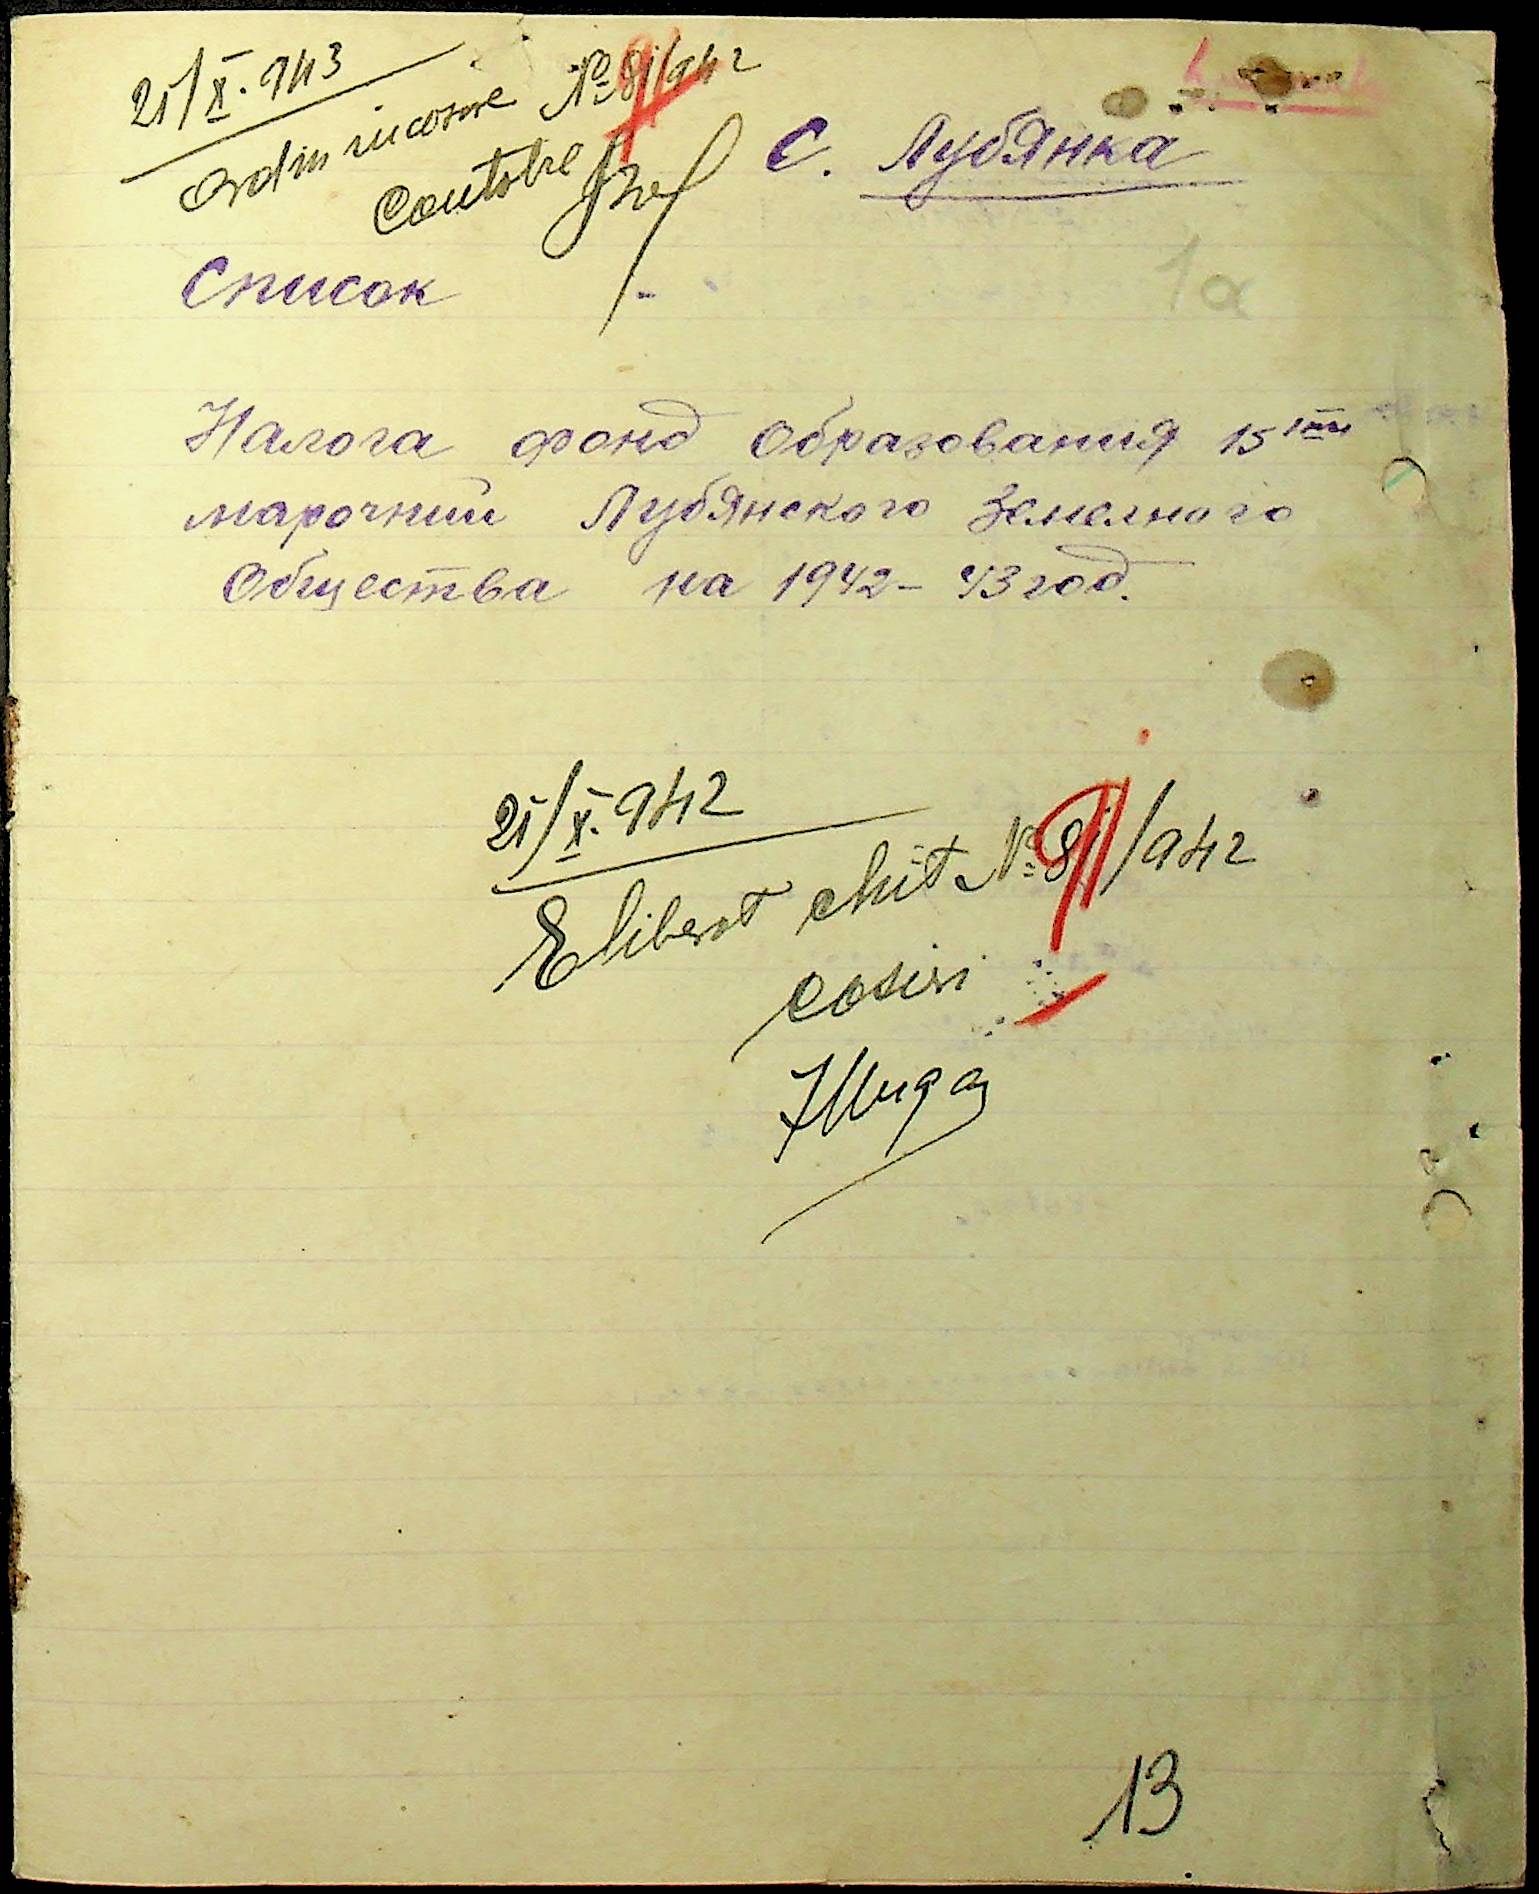 21/X.943
Ordin incasare № 81/942
Contabil
С. Лубянка
1а
Список
Налога фонд Образования 15тии
марочнии Лубянского Земелного
Общества на 1942-43 год.
21/X.942
Eliberat chit № 81/942
casieri
13